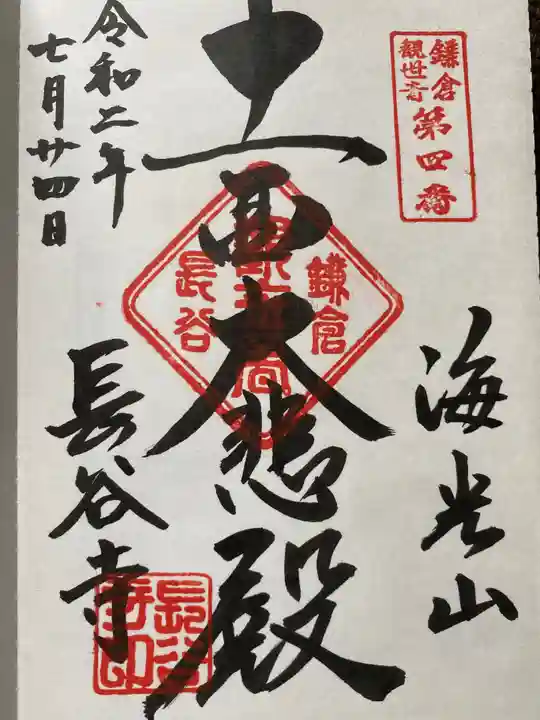 鎌倉
観世音
第四番
海光山
十一面大悲殿
鎌倉
長谷
長谷寺
長谷
寺印
令和二年
七月廿四日